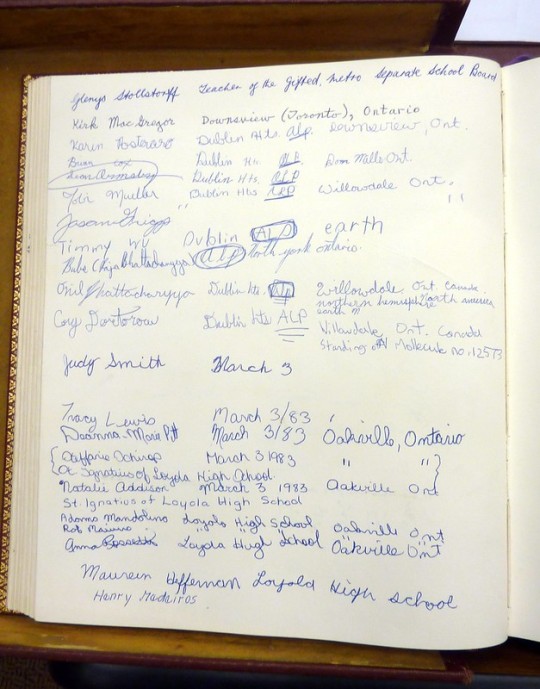 Glenys Stollstorff Teacher of the Gifted, Metro Separate School Board
Kirk MacGregor Downsview (Toronto), Ontario
Karen Dublin Hts. alp. Downsview, Ont.
Brian Cox Dublin Hts. ALP Don Mills Ont.
Dublin Hts. ALP
Tobi Muller Dublin Hts ALP Willowdale Ont.
" "
Jason Griggs
Timmy Wu Dublin ALP earth
Buba (Raja Bhattacharyya) alp North york ontario.
Bhattacharyya Dublin hts. alp Willowdale Ont. Canada
northern hemisphere North america
earth
Cory Doctorow Dublin hts ALP Willowdale Ont. Canada
Standing on Molecule no. 12573
Judy Smith March 3
Tracy Lewis March 3/83
Deanna Marie Pitt March 3/83 Oakville, Ontario
Steffanie Schirop March 3 1983 " "
St. Ignatius of Loyola High School
Natalie Addison March 3 1983 Oakville Ont
St. Ignatius of Loyola High School
Adorno Mandolino Loyola High School Oakville Ont
Rob " " "
Anna Loyola High School Oakville Ont
Maureen Heffernan Loyola High School
Henry Medeiros